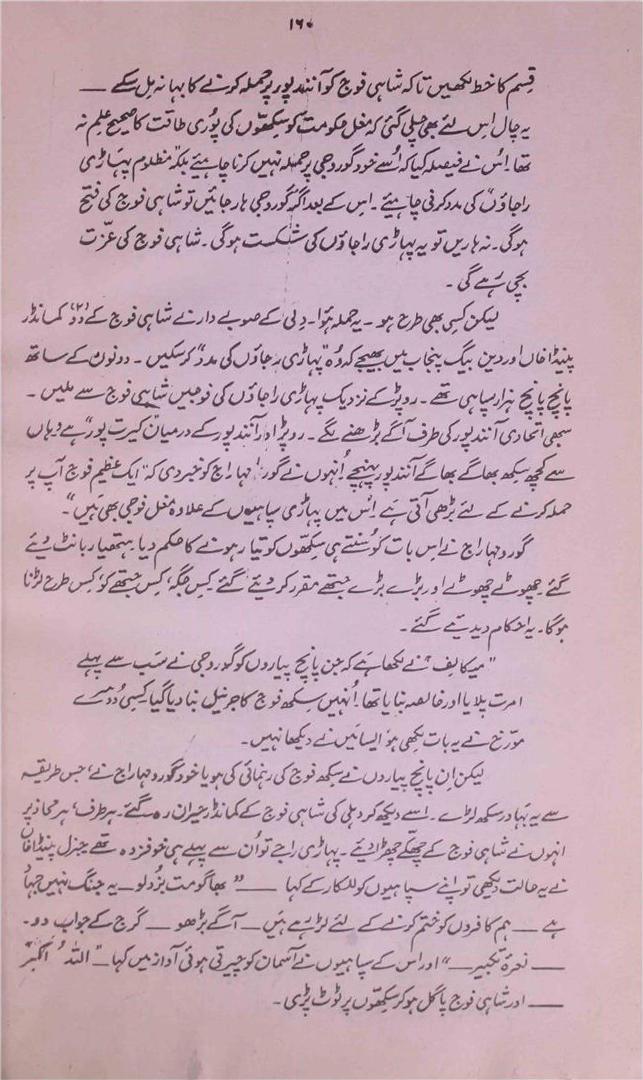 ۱۶۰
قسم کا خط لکھیں تاکہ شاہی فوج کو آنند پور پر حملہ کرنے کا بہانہ مل سکے ــــ
یہ چال اس لئے بھی چلی گئی کہ مغل حکومت کو سکھوں کی پوری طاقت کا صحیح علم نہ
تھا۔ اس نے فیصلہ کیا کہ اُسے خود گورو جی پر حملہ نہیں کرنا چاہیئے بلکہ "مظلوم پہاڑی
راجاؤں" کی مدد کرنی چاہیئے۔ اس کے بعد اگر گورو جی ہار جائیں تو شاہی فوج کی فتح
ہوگی۔ نہ ہاریں تو یہ پہاڑی راجاؤں کی شکست ہوگی۔ شاہی فوج کی عزت
بچی رہے گی۔
لیکن کسی بھی طرح ہو۔ یہ حملہ ہوا۔ دلی کے صوبے دار نے شاہی فوج کے دو "۲" کمانڈر
پینڈا خاں اور دین بیگ پنجاب میں بھیجے کہ وہ "پہاڑی رجاؤں کی مدد" کر سکیں۔ دونوں کے ساتھ
پانچ پانچ ہزار سپاہی تھے۔ روپڑ کے نزدیک پہاڑی راجاؤں کی فوجیں شاہی فوج سے ملیں۔
سبھی اتحادی آنند پور کی طرف آگے بڑھنے لگے۔ روپڑ اور آنند پور کے درمیان "کیرت پور" ہے وہاں
سے کچھ سکھ بھاگے بھاگے آنند پور پہنچے اُنہوں نے گورو مہاراج کو خبر دی کہ "ایک عظیم فوج آپ پر
حملہ کرنے کے لئے بڑھی آتی ہے اِس میں پہاڑی سپاہیوں کے علاوہ مغل فوجی بھی ہیں"۔
گورو مہاراج نے اس بات کو سُنتے ہی سکھوں کو تیار رہنے کا حکم دیا۔ ہتھیار بانٹ دیئے
گئے۔ چھوٹے چھوٹے اور بڑے بڑے جتھے مقرر کر دیئے گئے۔ کس جگہ، کس جتھے کو کس طرح لڑنا
ہوگا۔ یہ احکام دیدیئے گئے۔
"میکالیف" نے لکھا ہے کہ جن پانچ پیاروں کو گورو جی نے سب سے پہلے
امرت پلایا اور خالصہ بنایا تھا۔ اُنہیں سکھ فوج کا جرنیل بنا دیا گیا کسی دُوسرے
مورّخ نے یہ بات لکھی ہو ایسا میں نے دیکھا نہیں۔
لیکن ان پانچ پیاروں نے سکھ فوج کی رہنمائی کی ہو یا خود گورو مہاراج نے، جس طریقہ
سے یہ بہادر سکھ لڑے۔ اسے دیکھ کر دہلی کی شاہی فوج کے کمانڈر حیران رہ گئے۔ ہر طرف، ہر محاذ پر
انہوں نے شاہی فوج کے چھکے چھڑا دئے۔ پہاڑی راجے تو اُن سے پہلے ہی خوفزدہ تھے جنرل پینڈا خاں
نے یہ حالت دیکھی تو اپنے سپاہیوں کو للکار کے کہا ــــ "بھاگو مت بزدلو۔ یہ جنگ نہیں جہاد
ہے ــــ ہم کافروں کو ختم کرنے کے لئے لڑ رہے ہیں ــــ آگے بڑھو ــــ گرج کے جواب دو۔
ــــ نعرۂ تکبیر ــــ" اور اس کے سپاہیوں نے آسمان کو چیرتی ہوئی آواز میں کہا ــ "اللہُ اکبر"
ــــ اور شاہی فوج پاگل ہو کر سکھوں پر ٹوٹ پڑی۔